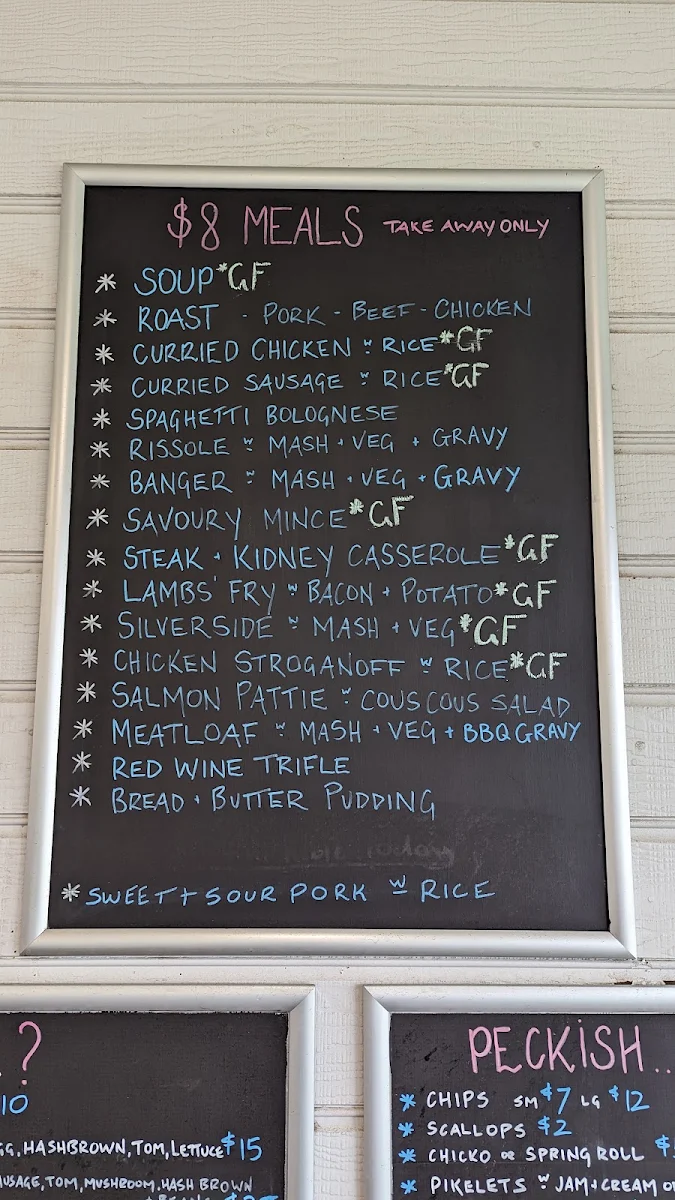 $8 MEALS TAKE AWAY ONLY
* SOUP *GF
* ROAST - PORK - BEEF - CHICKEN
* CURRIED CHICKEN w RICE *GF
* CURRIED SAUSAGE w RICE *GF
* SPAGHETTI BOLOGNESE
* RISSOLE w MASH + VEG + GRAVY
* BANGER w MASH + VEG + GRAVY
* SAVOURY MINCE *GF
* STEAK + KIDNEY CASSEROLE *GF
* LAMBS' FRY w BACON + POTATO *GF
* SILVERSIDE w MASH + VEG *GF
* CHICKEN STROGANOFF w RICE *GF
* SALMON PATTIE w COUSCOUS SALAD
* MEATLOAF w MASH + VEG + BBQ GRAVY
* RED WINE TRIFLE
* BREAD + BUTTER PUDDING
* SWEET + SOUR PORK w RICE
?
10
GG, HASHBROWN, TOM, LETTUCE $15
AUSAGE, TOM, MUSHROOM, HASH BROWN
PECKISH...
* CHIPS SM $7 LG $12
* SCALLOPS $2
* CHICKO OR SPRING ROLL $
* PIKELETS w JAM + CREAM